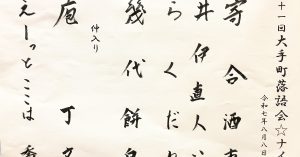 十一回大手町落語会☆ナイ
令和七年八月八日
寄合酒
井伊直人
らくだ
幾代餅
仲入り
庖丁
えーっとここは